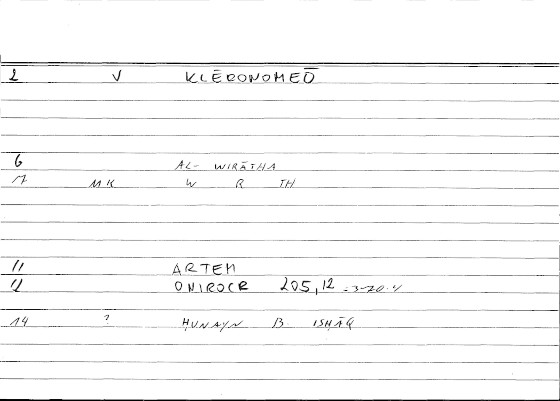 2 V KLĒRONOMEŌ
6 AL- WIRĀTHA
7 MK W R TH
11 ARTEM
12 ONIROCR 205,12 = 3-20.4
14 ? ḤUNAYN B. ISḤĀQ